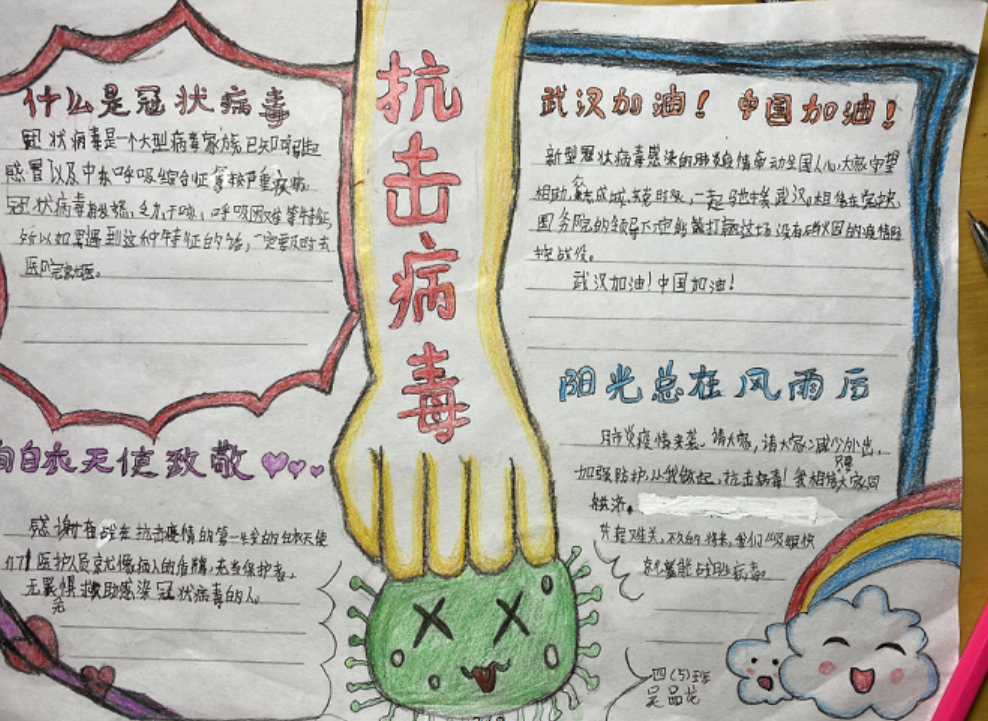 什么是冠状病毒
冠状病毒是一个大型病毒家族,已知可引起
感冒以及中东呼吸综合征等较严重疾病。
冠状病毒有发烧,乏力,干咳,呼吸困难等特征,
所以如果遇到这种特征的话,一定要及时去
医院就医。
向白衣天使致敬
感谢在战在抗击疫情的第一线的白衣天使
们!医护人员
无畏惧救助感染冠状病毒的人。
抗击病毒
武汉加油!中国加油!
新型冠状病毒感染的肺炎疫情牵动全国人心,大家守望
相助,众志成城,一起驰援武汉。相信在党中央,
国务院的领导下定能打赢这场没有硝烟的疫情防
控战役。
武汉加油!中国加油!
阳光总在风雨后
肺炎疫情来袭。请大家,请大家减少外出,
加强防护,从我做起,抗击病毒!我相信只要大家同
舟共济。
共克难关,不久的将来,我们
就能战胜病毒。
四(5)班
吴品